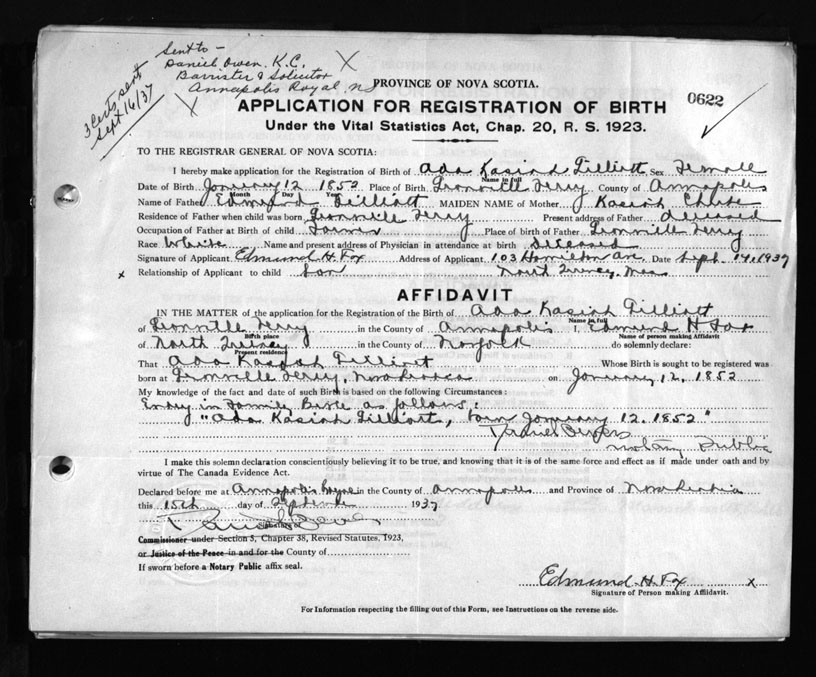 Sent to -
Daniel Owen. K.C. X
Barrister & Solicitor
Annapolis Royal. NS
3 Certs sent
Sept 16/37
X
PROVINCE OF NOVA SCOTIA.
APPLICATION FOR REGISTRATION OF BIRTH
0622
Under the Vital Statistics Act, Chap. 20, R. S. 1923.
TO THE REGISTRAR GENERAL OF NOVA SCOTIA:
I hereby make application for the Registration of Birth of Ada Kasiah Gilliatt Sex Female
Name in full
Date of Birth January 12 1852 Place of Birth Granville Ferry County of Annapolis
Month Day Year
Name of Father Edward Gilliatt MAIDEN NAME of Mother Kasiah Chute
Residence of Father when child was born Granville Ferry Present address of Father deceased
Occupation of Father at Birth of child Farmer Place of birth of Father Granville Ferry
Race White Name and present address of Physician in attendance at birth Deceased
Signature of Applicant Edmund H. Fox Address of Applicant 103 Hamilton Av. Date Sept. 14, 1937
x Relationship of Applicant to child Son North Quincy, Mass
AFFIDAVIT
IN THE MATTER of the application for the Registration of the Birth of Ada Kasiah Gilliatt
Name in full
of Granville Ferry in the County of Annapolis I, Edmund H Fox
Birth place Name of person making Affidavit
of North Quincy in the County of Norfolk do solemnly declare:
Present residence
That Ada Kasiah Gilliatt Whose Birth is sought to be registered was
born at Granville Ferry, Nova Scotia on January, 12, 1852
My knowledge of the fact and date of such Birth is based on the following Circumstances:
Entry in Family Bible as follows:
"Ada Kasiah Gilliatt, born January 12. 1852"
Daniel Owen
Notary Public
I make this solemn declaration conscientiously believing it to be true, and knowing that it is of the same force and effect as if made under oath and by
virtue of The Canada Evidence Act.
Declared before me at Annapolis Royal in the County of Annapolis and Province of Nova Scotia
this 15th day of September 1937
Daniel Owen
Signature of
Commissioner under Section 5, Chapter 38, Revised Statutes, 1923,
or Justice of the Peace in and for the County of
If sworn before a Notary Public affix seal.
Edmund. H. Fox x
Signature of Person making Affidavit.
For Information respecting the filling out of this Form, see Instructions on the reverse side.